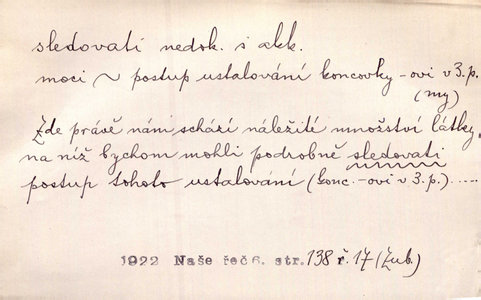 sledovati nedok. s akk.
moci ~ postup ustalování koncovky -ovi v 3. p.
(my)
Zde právě nám schází náležité množství látky,
na níž bychom mohli podrobně sledovati
postup tohoto ustalování (konc. -ovi v 3. p.) .....
1922 Naše řeč 6. str. 138 ř. 17 (Zub.)